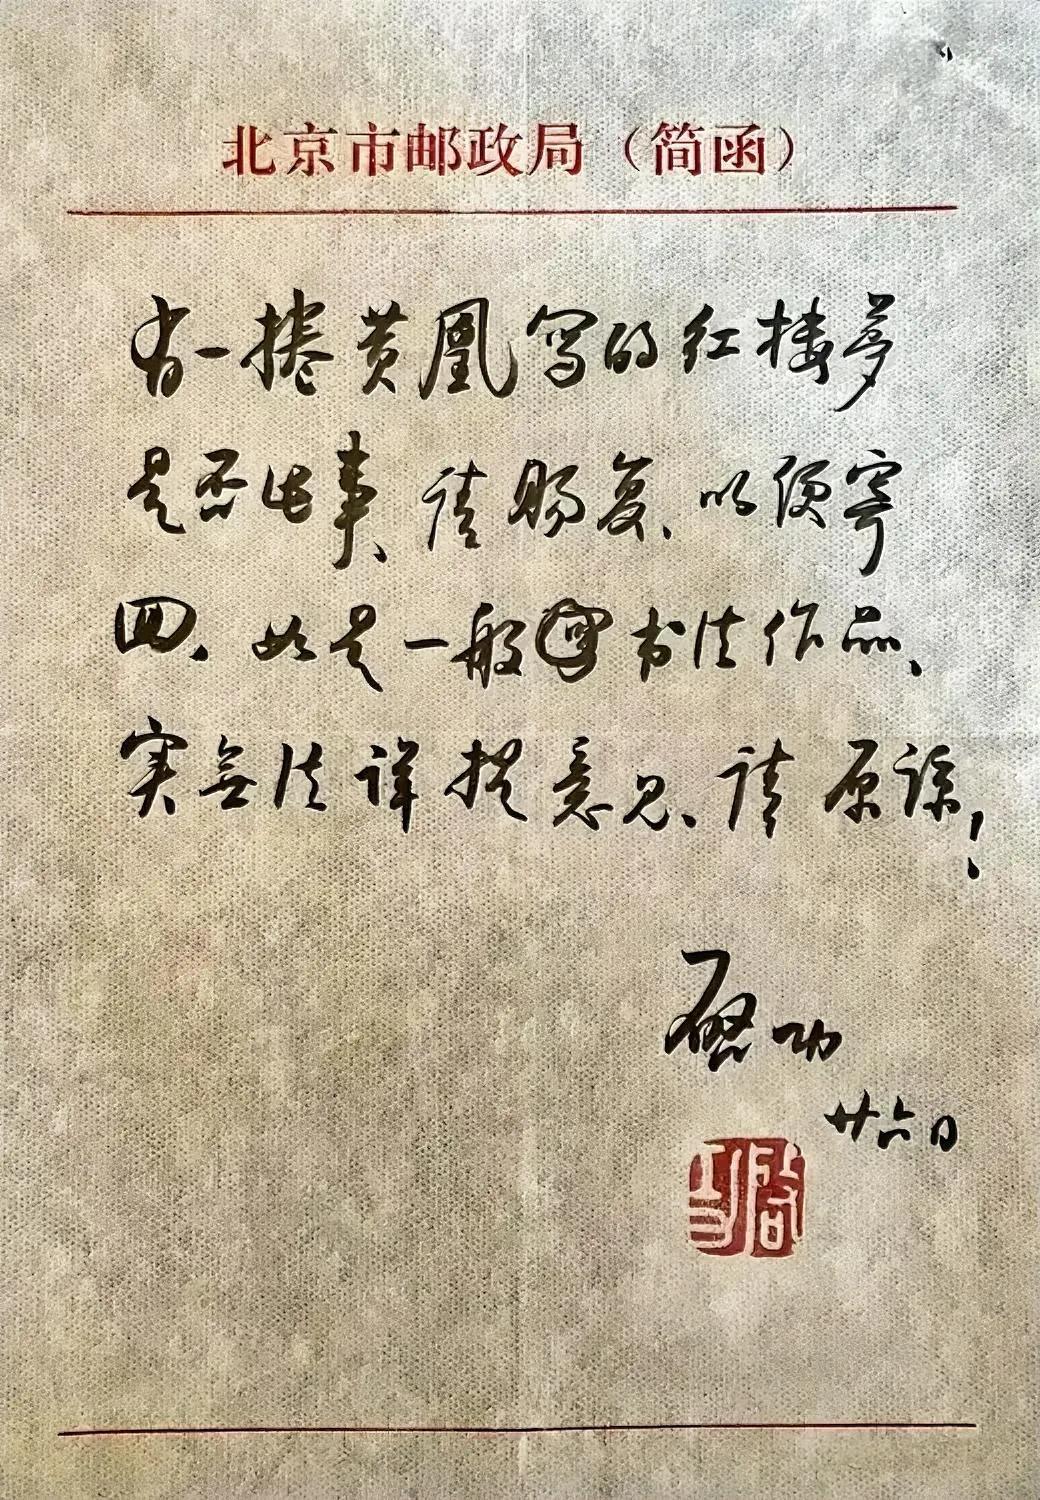 北京市邮政局（简函）
有一捲黄凰写的红楼梦
是否此事、请赐复、以便寄
回、如是一般书法作品、
实无法详提意见、请原谅！
启功
廿六日
启功